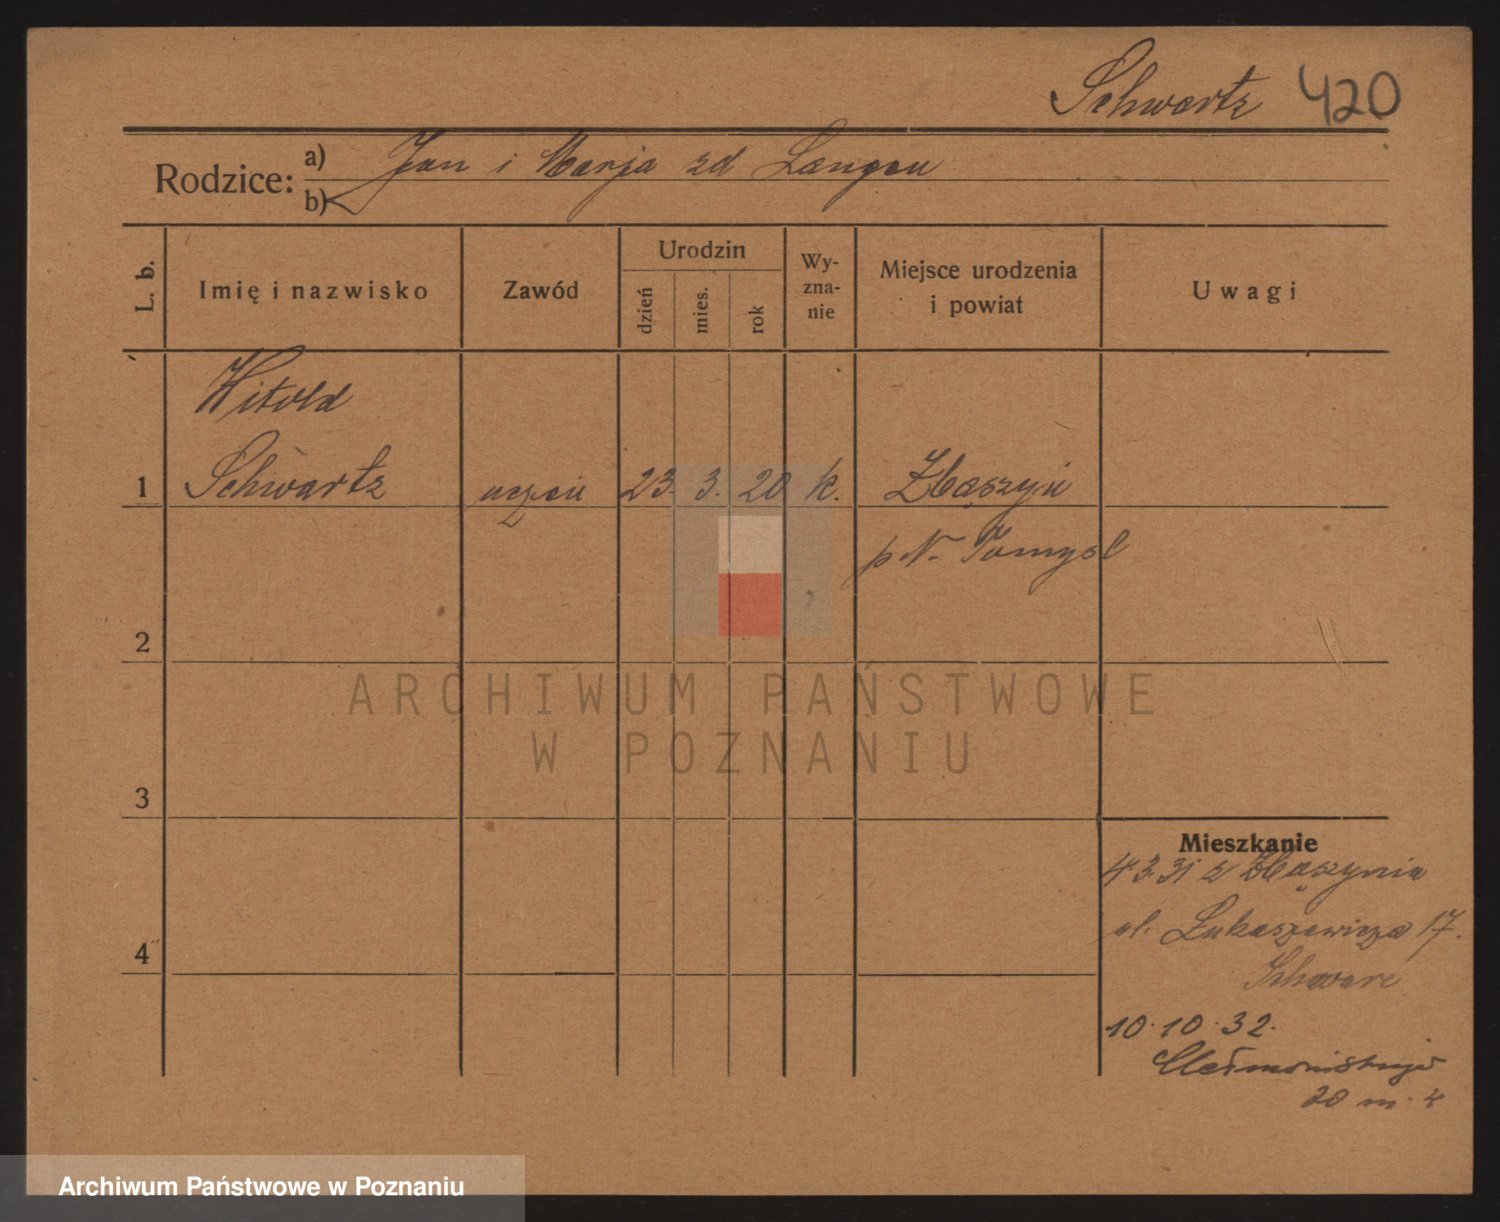 Schwartz 420
Rodzice: a) Jan i Marja zd Langou
b)
L. b.
Imię i nazwisko
Zawód
Urodzin
dzień
mies.
rok
Wy-
zna-
nie
Miejsce urodzenia
i powiat
Uwagi
Witold
1 Schwartz uczeń 23. 3. 20 k. Zbąszyń
p N. Tomysl
2
ARCHIWUM PAŃSTWOWE
W POZNANIU
3
Mieszkanie
4 3 31 z Zbąszynia
ul. Łukaszewicza 17.
4
10.10.32.
20 m. 4
Archiwum Państwowe w Poznaniu